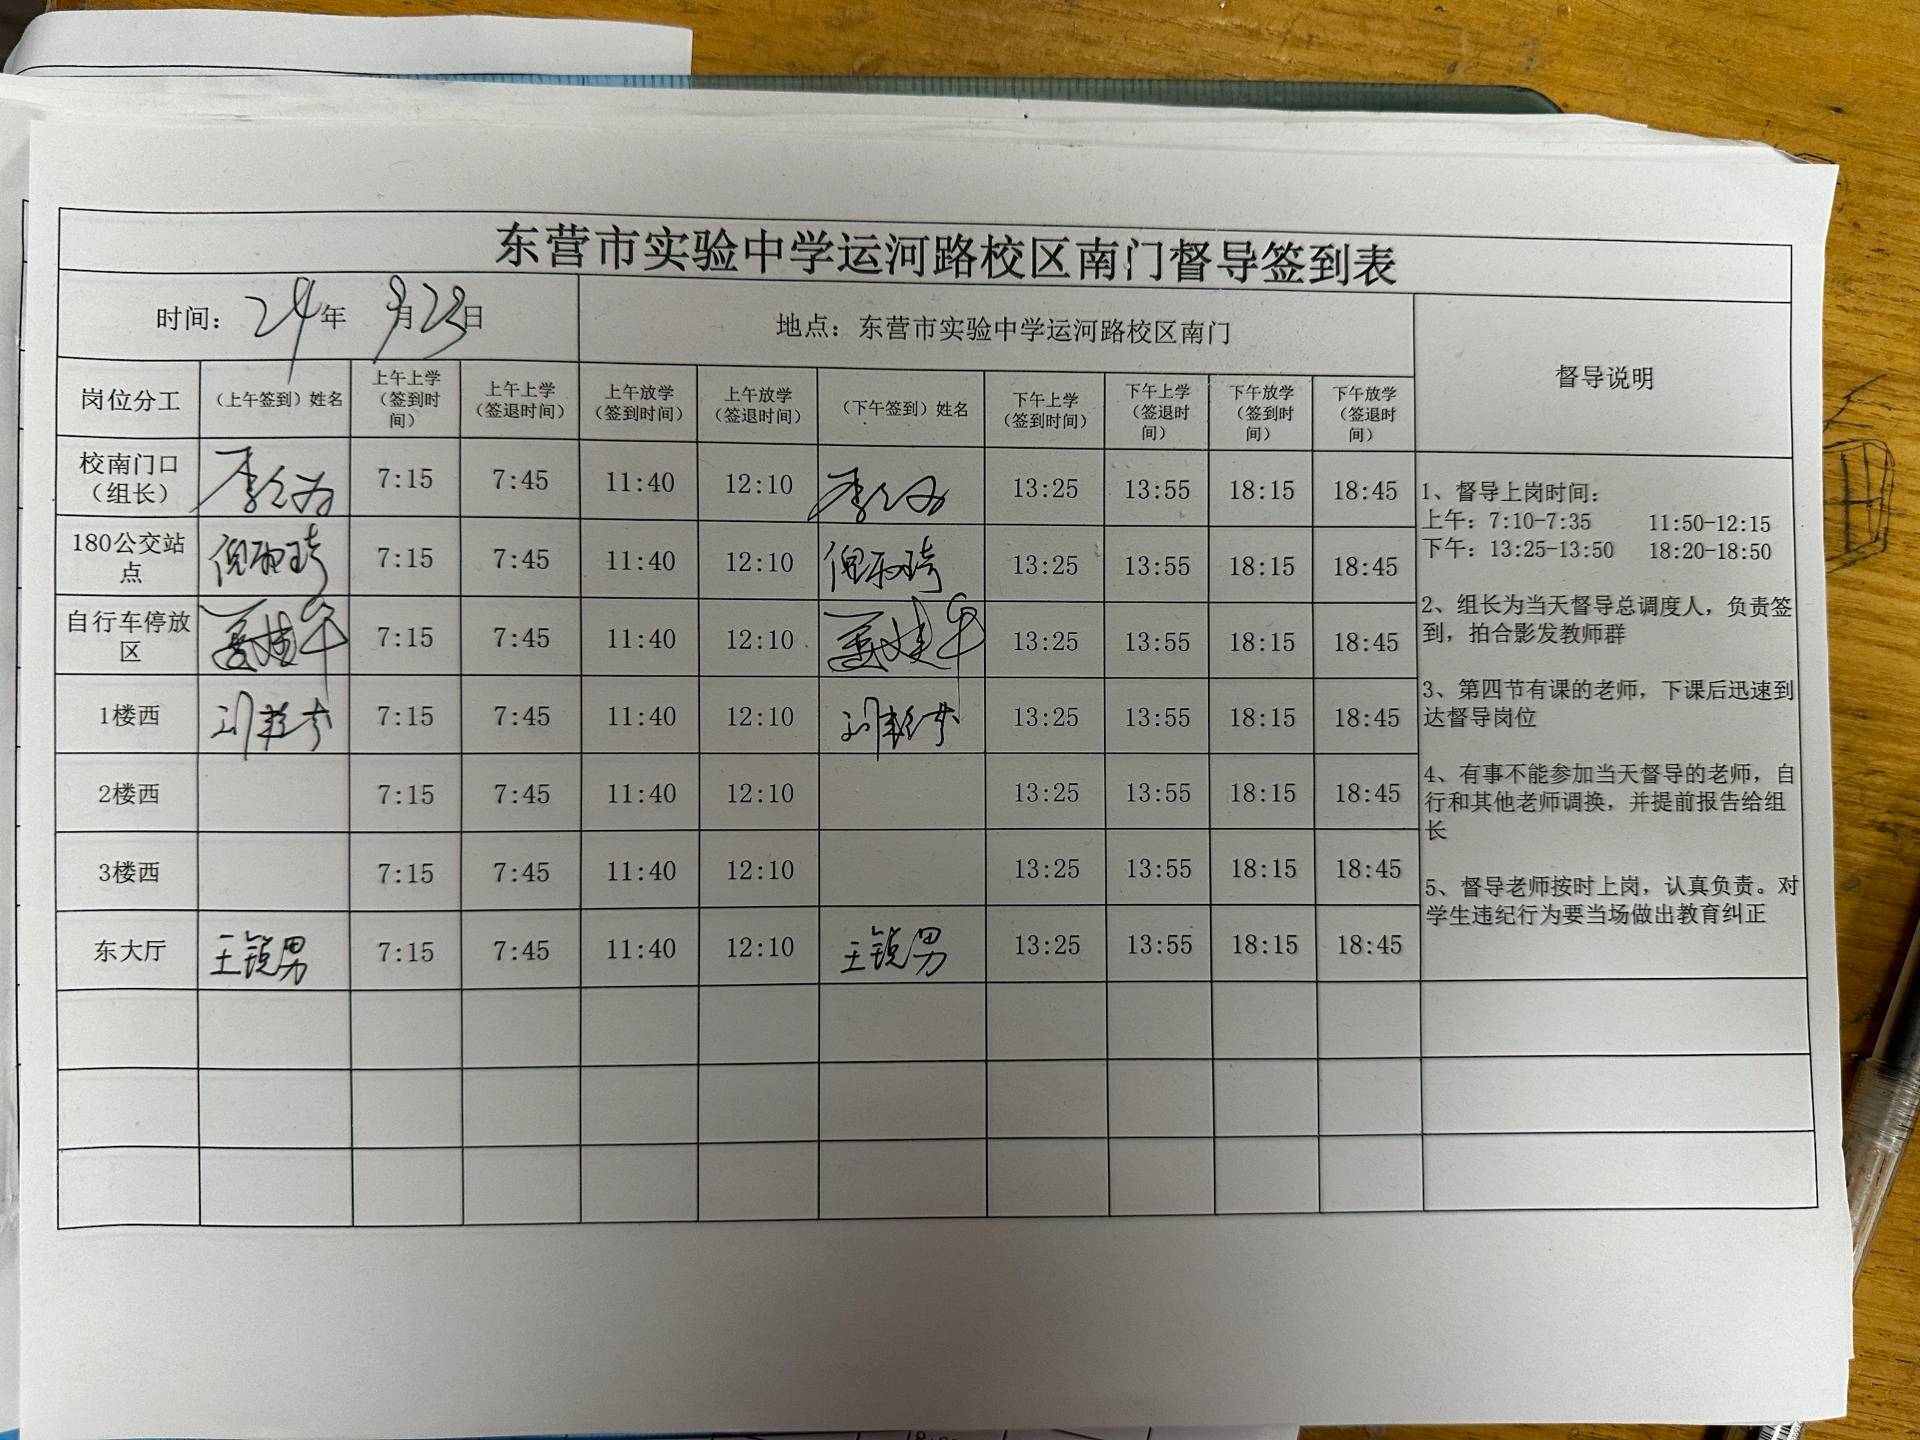 东营市实验中学运河路校区南门督导签到表
时间：24年 9月23日 地点：东营市实验中学运河路校区南门 督导说明
岗位分工 （上午签到）姓名 上午上学（签到时间） 上午上学（签退时间） 上午放学（签到时间） 上午放学（签退时间） （下午签到）姓名 下午上学（签到时间） 下午上学（签退时间） 下午放学（签到时间） 下午放学（签退时间）
校南门口（组长） 7:15 7:45 11:40 12:10 13:25 13:55 18:15 18:45
180公交站点 7:15 7:45 11:40 12:10 13:25 13:55 18:15 18:45
自行车停放区 7:15 7:45 11:40 12:10 13:25 13:55 18:15 18:45
1楼西 7:15 7:45 11:40 12:10 13:25 13:55 18:15 18:45
2楼西 7:15 7:45 11:40 12:10 13:25 13:55 18:15 18:45
3楼西 7:15 7:45 11:40 12:10 13:25 13:55 18:15 18:45
东大厅 王锐男 7:15 7:45 11:40 12:10 王锐男 13:25 13:55 18:15 18:45
1、督导上岗时间：
上午：7:10-7:35 11:50-12:15
下午：13:25-13:50 18:20-18:50
2、组长为当天督导总调度人，负责签
到，拍合影发教师群
3、第四节有课的老师，下课后迅速到
达督导岗位
4、有事不能参加当天督导的老师，自
行和其他老师调换，并提前报告给组
长
5、督导老师按时上岗，认真负责。对
学生违纪行为要当场做出教育纠正